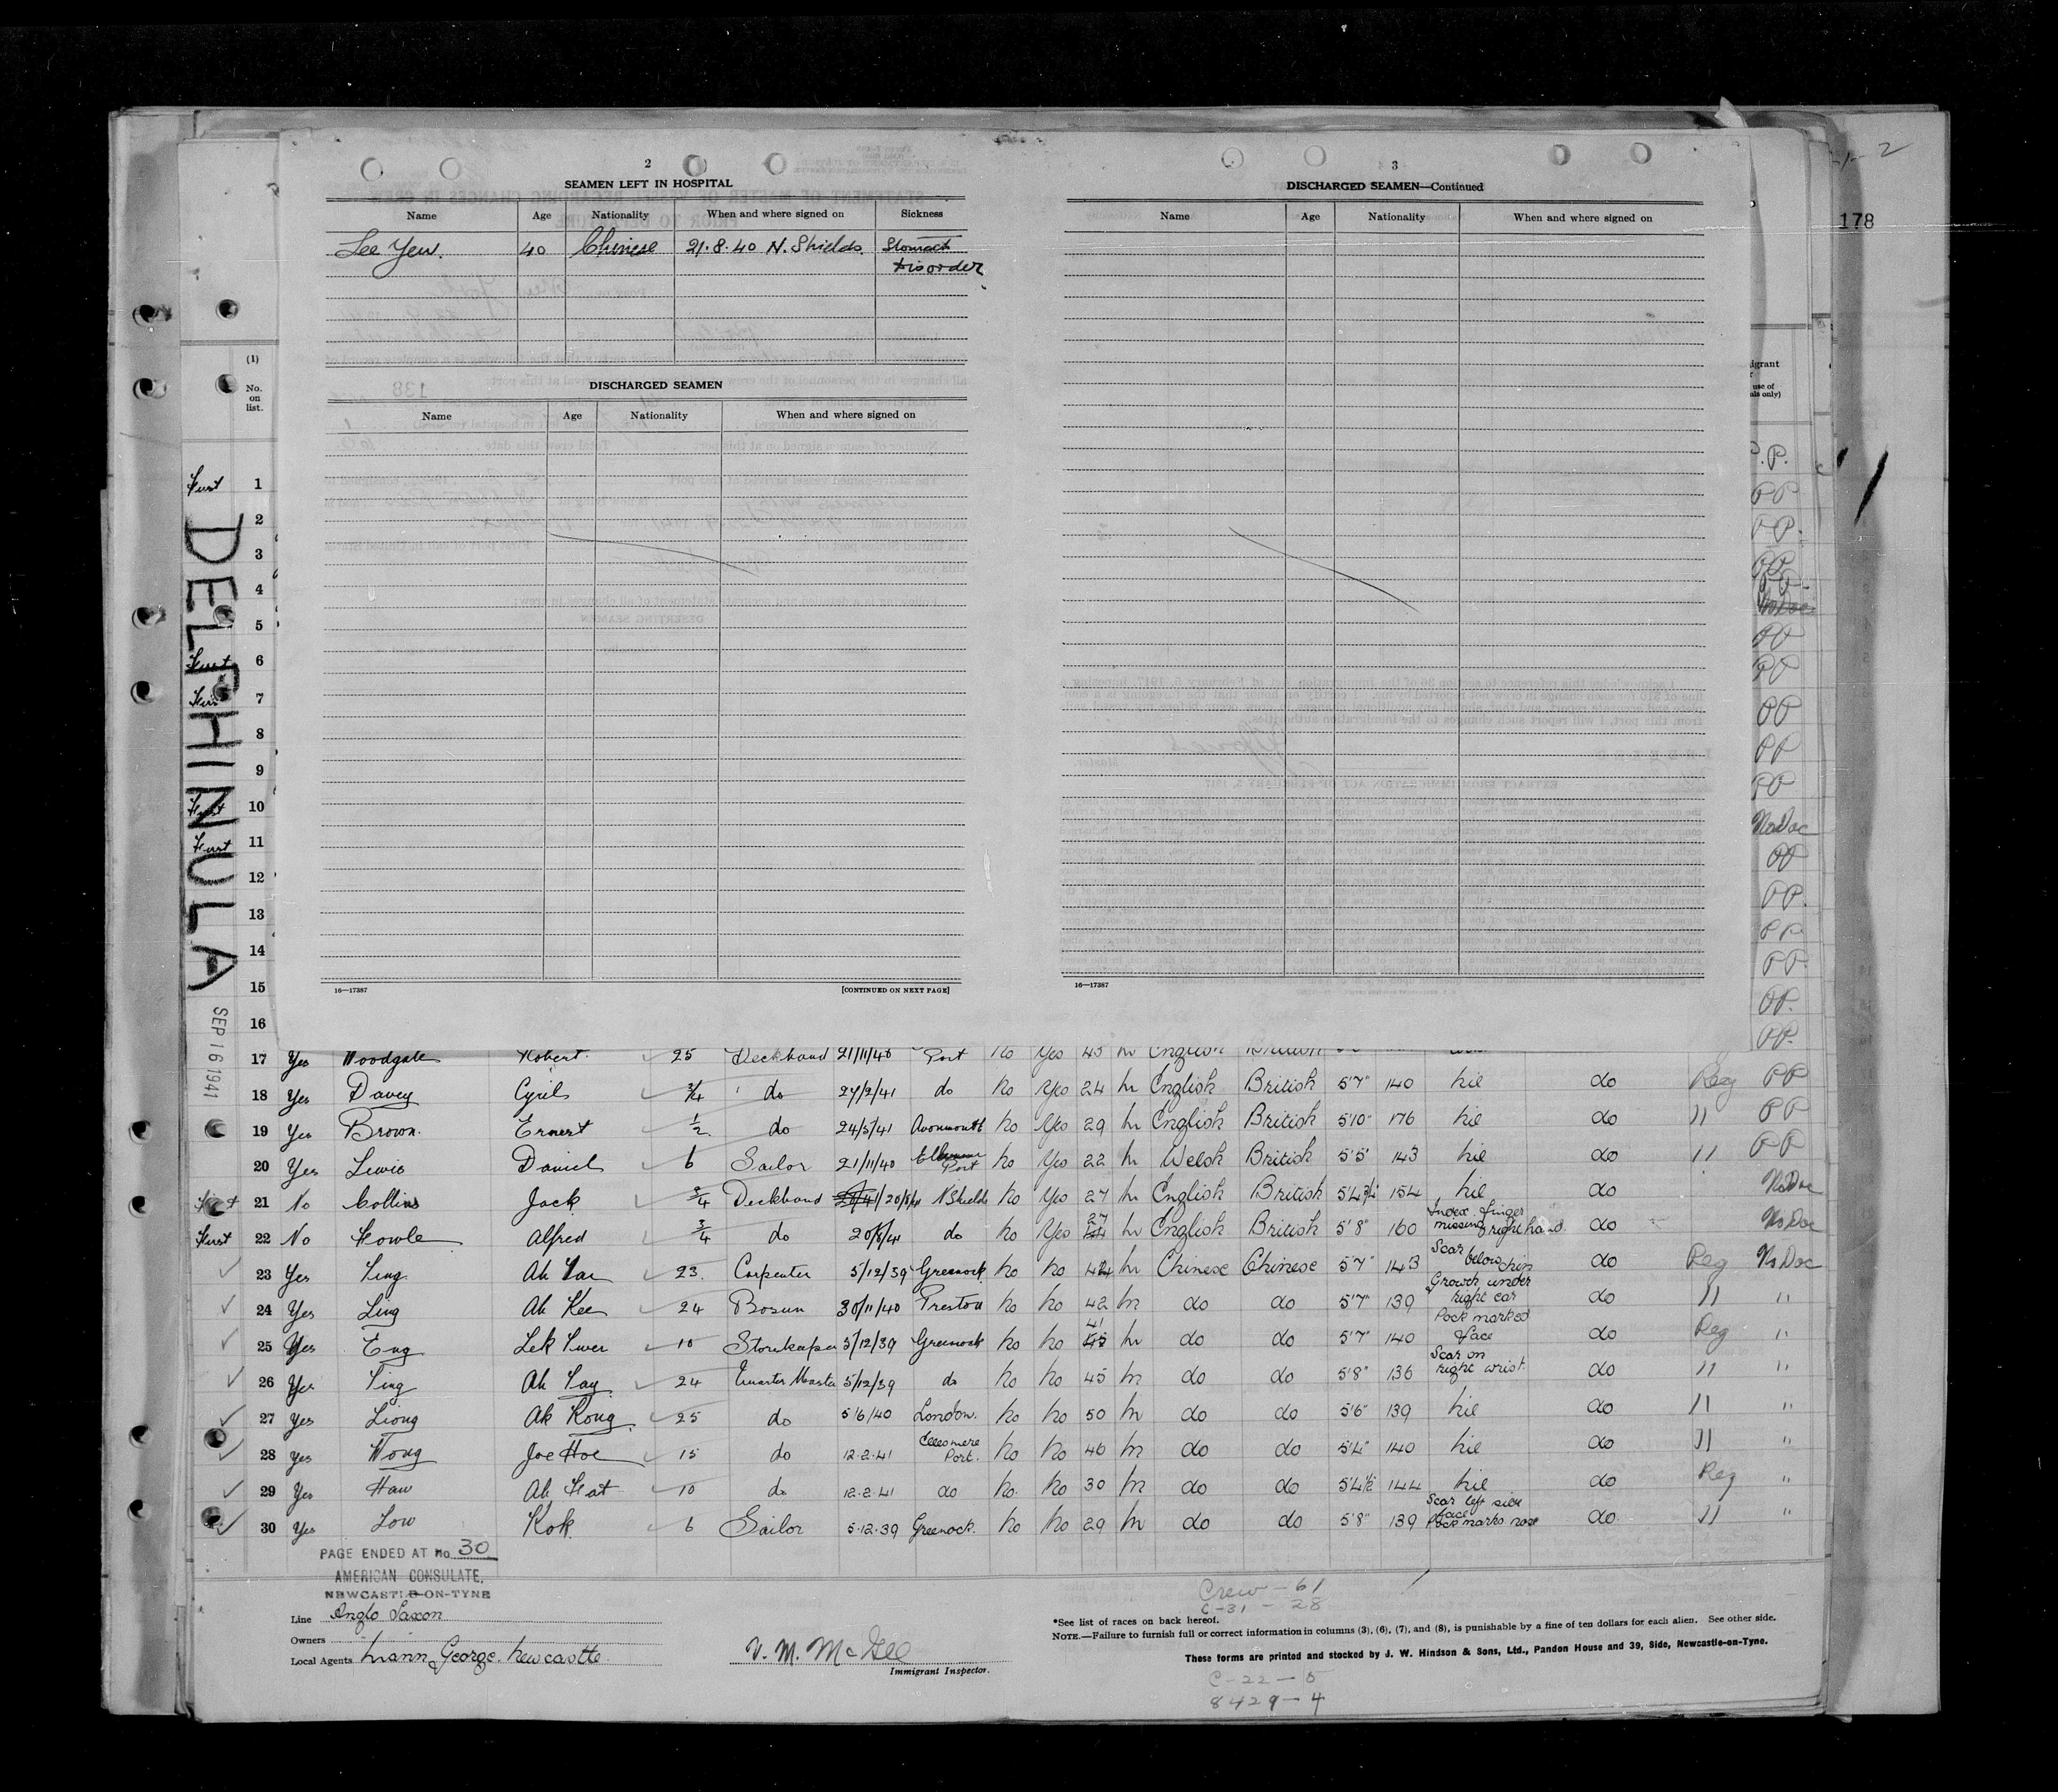 2
SEAMEN LEFT IN HOSPITAL
Name Age Nationality When and where signed on Sickness
Lee Yew. 40 Chinese 21·8·40 N. Shields. Stomach
Disorder
DISCHARGED SEAMEN
Name Age Nationality When and where signed on
16—17387 [CONTINUED ON NEXT PAGE]
3
DISCHARGED SEAMEN—Continued
Name Age Nationality When and where signed on
16—17387
2
178
(1)
No.
on
list.
DELPHINULA
SEP 16 1941
First 1
2
3
4
5
First 6
7
8
9
First 10
First 11
12
13
14
15
16
P.P.
PP
PP.
PP
PP
PP
PP
PP
PP
PP
No Doc
PP
PP.
PP
PP.
PP.
PP.
17 Yes Woodgate Robert. 25 Deckhand 21/11/40 Port No Yes 43 M English British
18 Yes Davey Cyril 3/4 do 27/2/41 do No Yes 24 M English British 5'7" 140 Nil do Reg PP
19 Yes Brown. Ernest 1/2 do 24/5/41 Avonmouth No Yes 29 M English British 5'10" 176 Nil do " PP
20 Yes Lewis Daniel 6 Sailor 21/11/40 Ellesmere Port No Yes 22 M Welsh British 5'5" 143 Nil do " PP
First 21 No Collins Jack 3/4 Deckhand 20/8/41 N Shields No Yes 27 M English British 5'4 3/4" 154 Nil do No Doc
First 22 No Fowle Alfred 3/4 do 20/8/41 do No Yes 27 M English British 5'8" 160 Index finger missing right hand. do No Doc
23 Yes Ah 23. Carpenter 5/12/39 Greenock No No 44 M Chinese Chinese 5'7" 143 Scar below chin do Reg No Doc
24 Yes Ling Ah Kee 24 Bosun 30/11/40 Preston No No 42 M do do 5'7" 139 Growth under right ear do " "
25 Yes Eng Lek Swee 10 Storekeeper 5/12/39 Greenock No No 41 M do do 5'7" 140 Pock marked face do Reg "
26 Yes Ah 24 Quarter Master 5/12/39 do No No 45 M do do 5'8" 136 Scar on right wrist. do " "
27 Yes Liong Ah Kong 25 do 5/6/40 London. No No 50 M do do 5'6" 139 Nil do " "
28 Yes Wong Joe Hoe 15 do 12·2·41 Ellesmere Port. No No 46 M do do 5'4" 140 Nil do " "
29 Yes Haw Ah Fat 10 do 12·2·41 do No No 30 M do do 5'4½ 144 Nil do Reg "
30 Yes Low Kok. 6 Sailor 5·12·39 Greenock. No No 29 M do do 5'8" 139 Scar left side face Pock marks nose do " "
PAGE ENDED AT No. 30
AMERICAN CONSULATE,
NEWCASTLE-ON-TYNE
Line Anglo Saxon
Owners
Local Agents Mann George. Newcastle
V. M. McGee
Immigrant Inspector.
Crew – 61
C-31 – 28
*See list of races on back hereof.
NOTE.—Failure to furnish full or correct information in columns (3), (6), (7), and (8), is punishable by a fine of ten dollars for each alien. See other side.
These forms are printed and stocked by J. W. Hindson & Sons, Ltd., Pandon House and 39, Side, Newcastle-on-Tyne.
C-22 – 5
8429 – 4